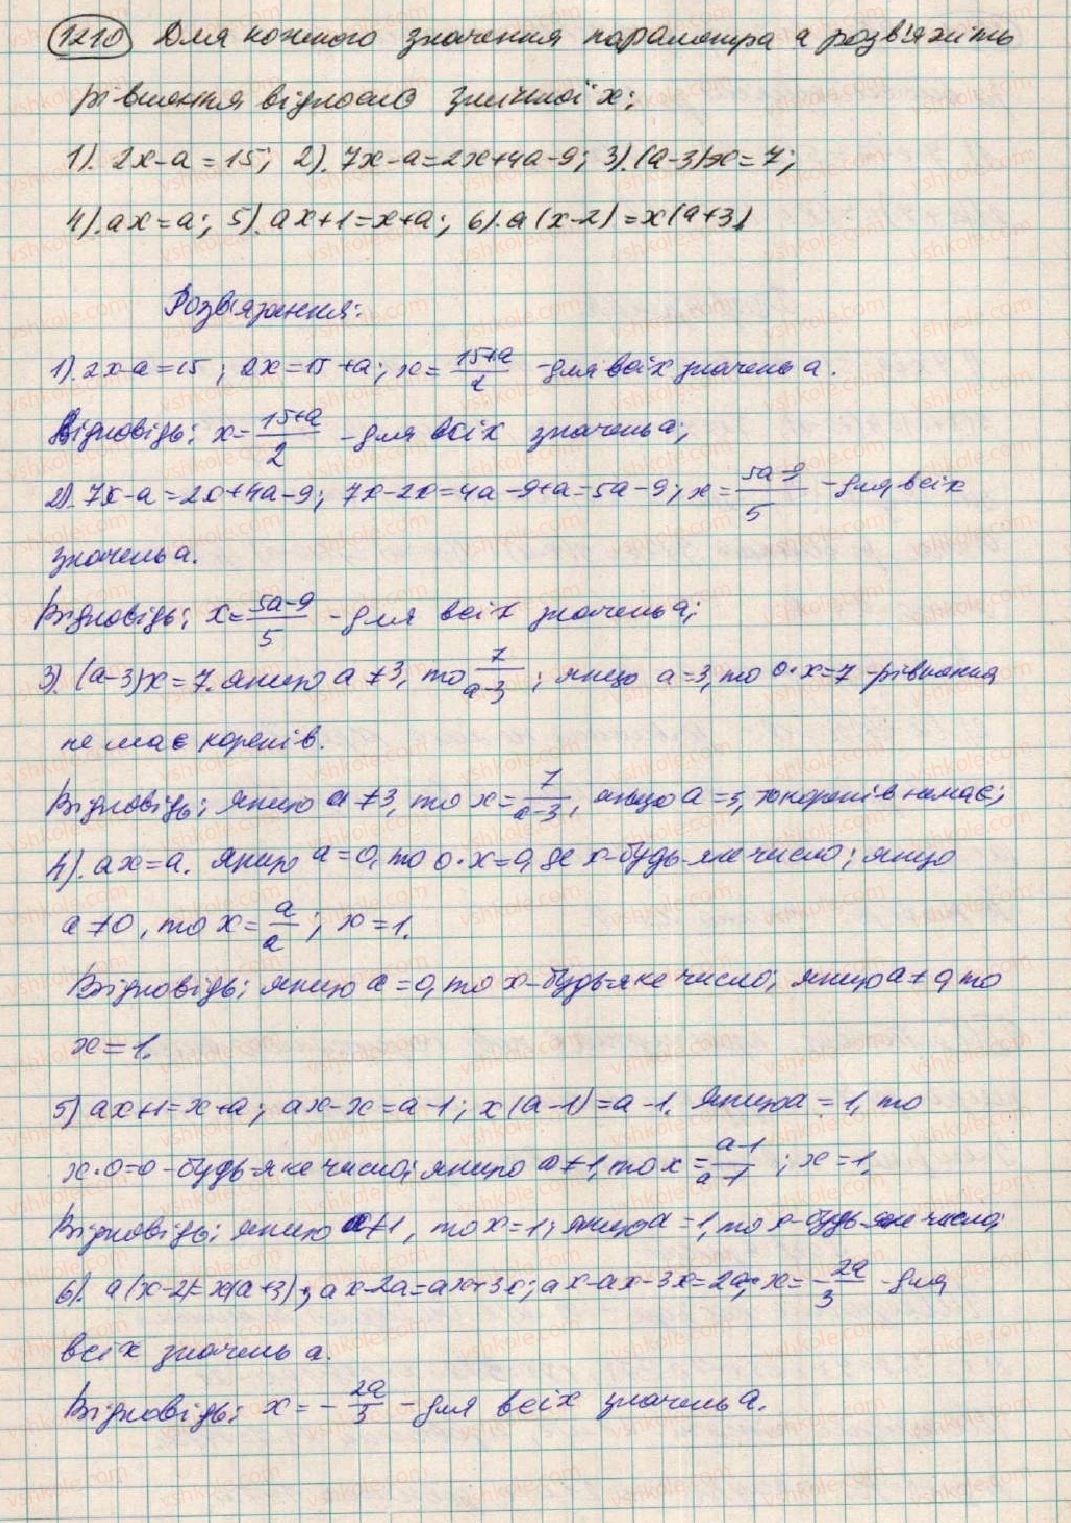 1210 Для кожного значення параметра a розв'яжіть
рівняння відносно змінної x:
1). 2x-a=15; 2). 7x-a=2x+4a-9; 3). (a-3)x=7;
4). ax=a; 5). ax+1=x+a; 6). a(x-2)=x(a+3).
Розв'язання:
1). 2x-a=15; 2x=15+a; x=\frac{15+a}{2} - для всіх значень a.
Відповідь: x=\frac{15+a}{2} - для всіх значень a;
2). 7x-a=2x+4a-9; 7x-2x=4a-9+a=5a-9; x=\frac{5a-9}{5} - для всіх
значень a.
Відповідь: x=\frac{5a-9}{5} - для всіх значень a;
3). (a-3)x=7. якщо a≠3, то \frac{7}{a-3}; якщо a=3, то 0·x=7 - рівняння
не має коренів.
Відповідь: якщо a≠3, то x=\frac{7}{a-3}, якщо a=3, то коренів немає;
4). ax=a. Якщо a=0, то 0·x=0, де x-будь-яке число; якщо
a≠0, то x=\frac{a}{a}; x=1.
Відповідь: якщо a=0, то x-будь-яке число; якщо a≠0, то
x=1.
5) ax+1=x+a; ax-x=a-1; x(a-1)=a-1. Якщо a=1, то
x·0=0 - будь-яке число; якщо a≠1, то x=\frac{a-1}{a-1}; x=1.
Відповідь: якщо a≠1, то x=1; якщо a=1, то x-будь-яке число;
6). a(x-2)=x(a+3); ax-2a=ax+3x; ax-ax-3x=2a; x=-\frac{2a}{3} - для
всіх значень a.
Відповідь: x=-\frac{2a}{3} - для всіх значень a.